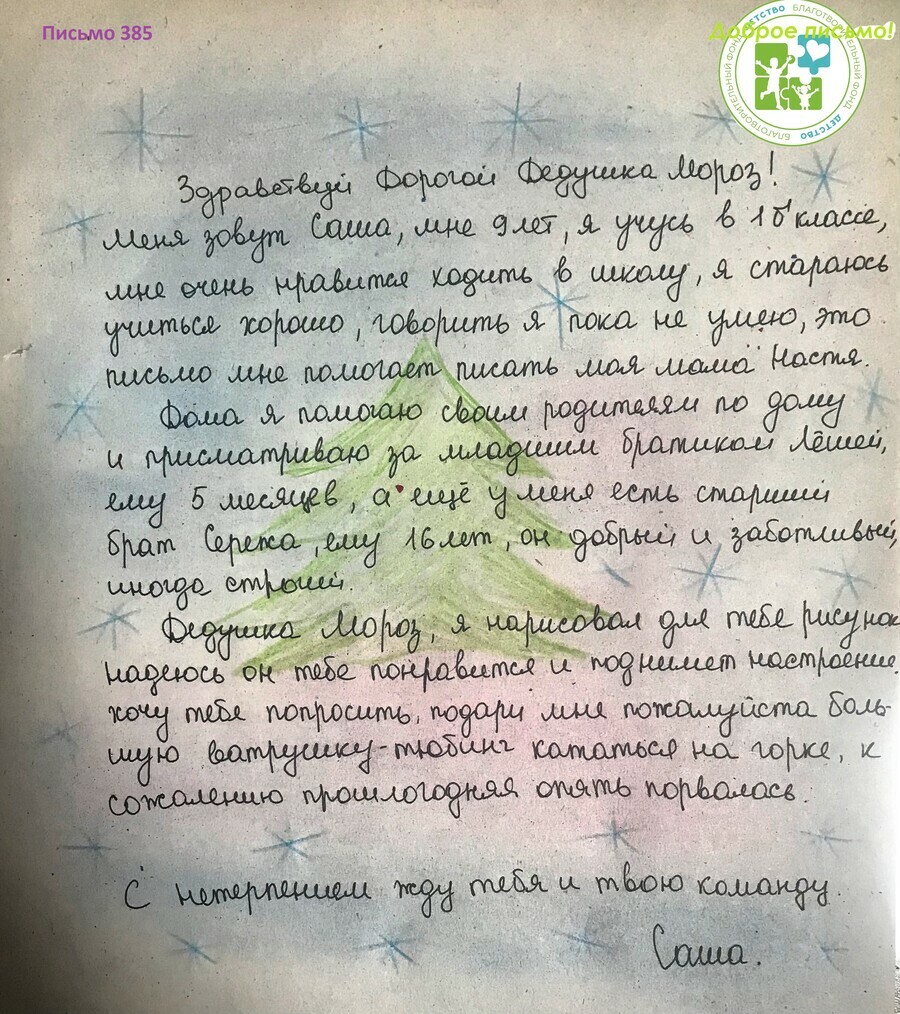 Письмо 385
Доброе письмо!
БЛАГОТВОРИТЕЛЬНЫЙ ФОНД ДЕТСТВО БЛАГОТВОРИТЕЛЬНЫЙ ФОНД ДЕТСТВО
Здравствуй Дорогой Дедушка Мороз!
Меня зовут Саша, мне 9 лет, я учусь в 1 б классе,
мне очень нравится ходить в школу, я стараюсь
учиться хорошо, говорить я пока не умею, это
письмо мне помогает писать моя мама Настя.
Дома я помогаю своим родителям по дому
и присматриваю за младшим братиком Лёшей,
ему 5 месяцев, а ещё у меня есть старший
брат Сережа, ему 16 лет, он добрый и заботливый,
иногда строгий.
Дедушка Мороз, я нарисовал для тебе рисунок
надеюсь он тебе понравится и поднимет настроение.
хочу тебе попросить, подари мне пожалуйста боль-
шую ватрушку-тюбинг кататься на горке, к
сожалению прошлогодняя опять порвалась.
С нетерпением жду тебя и твою команду.
Саша.